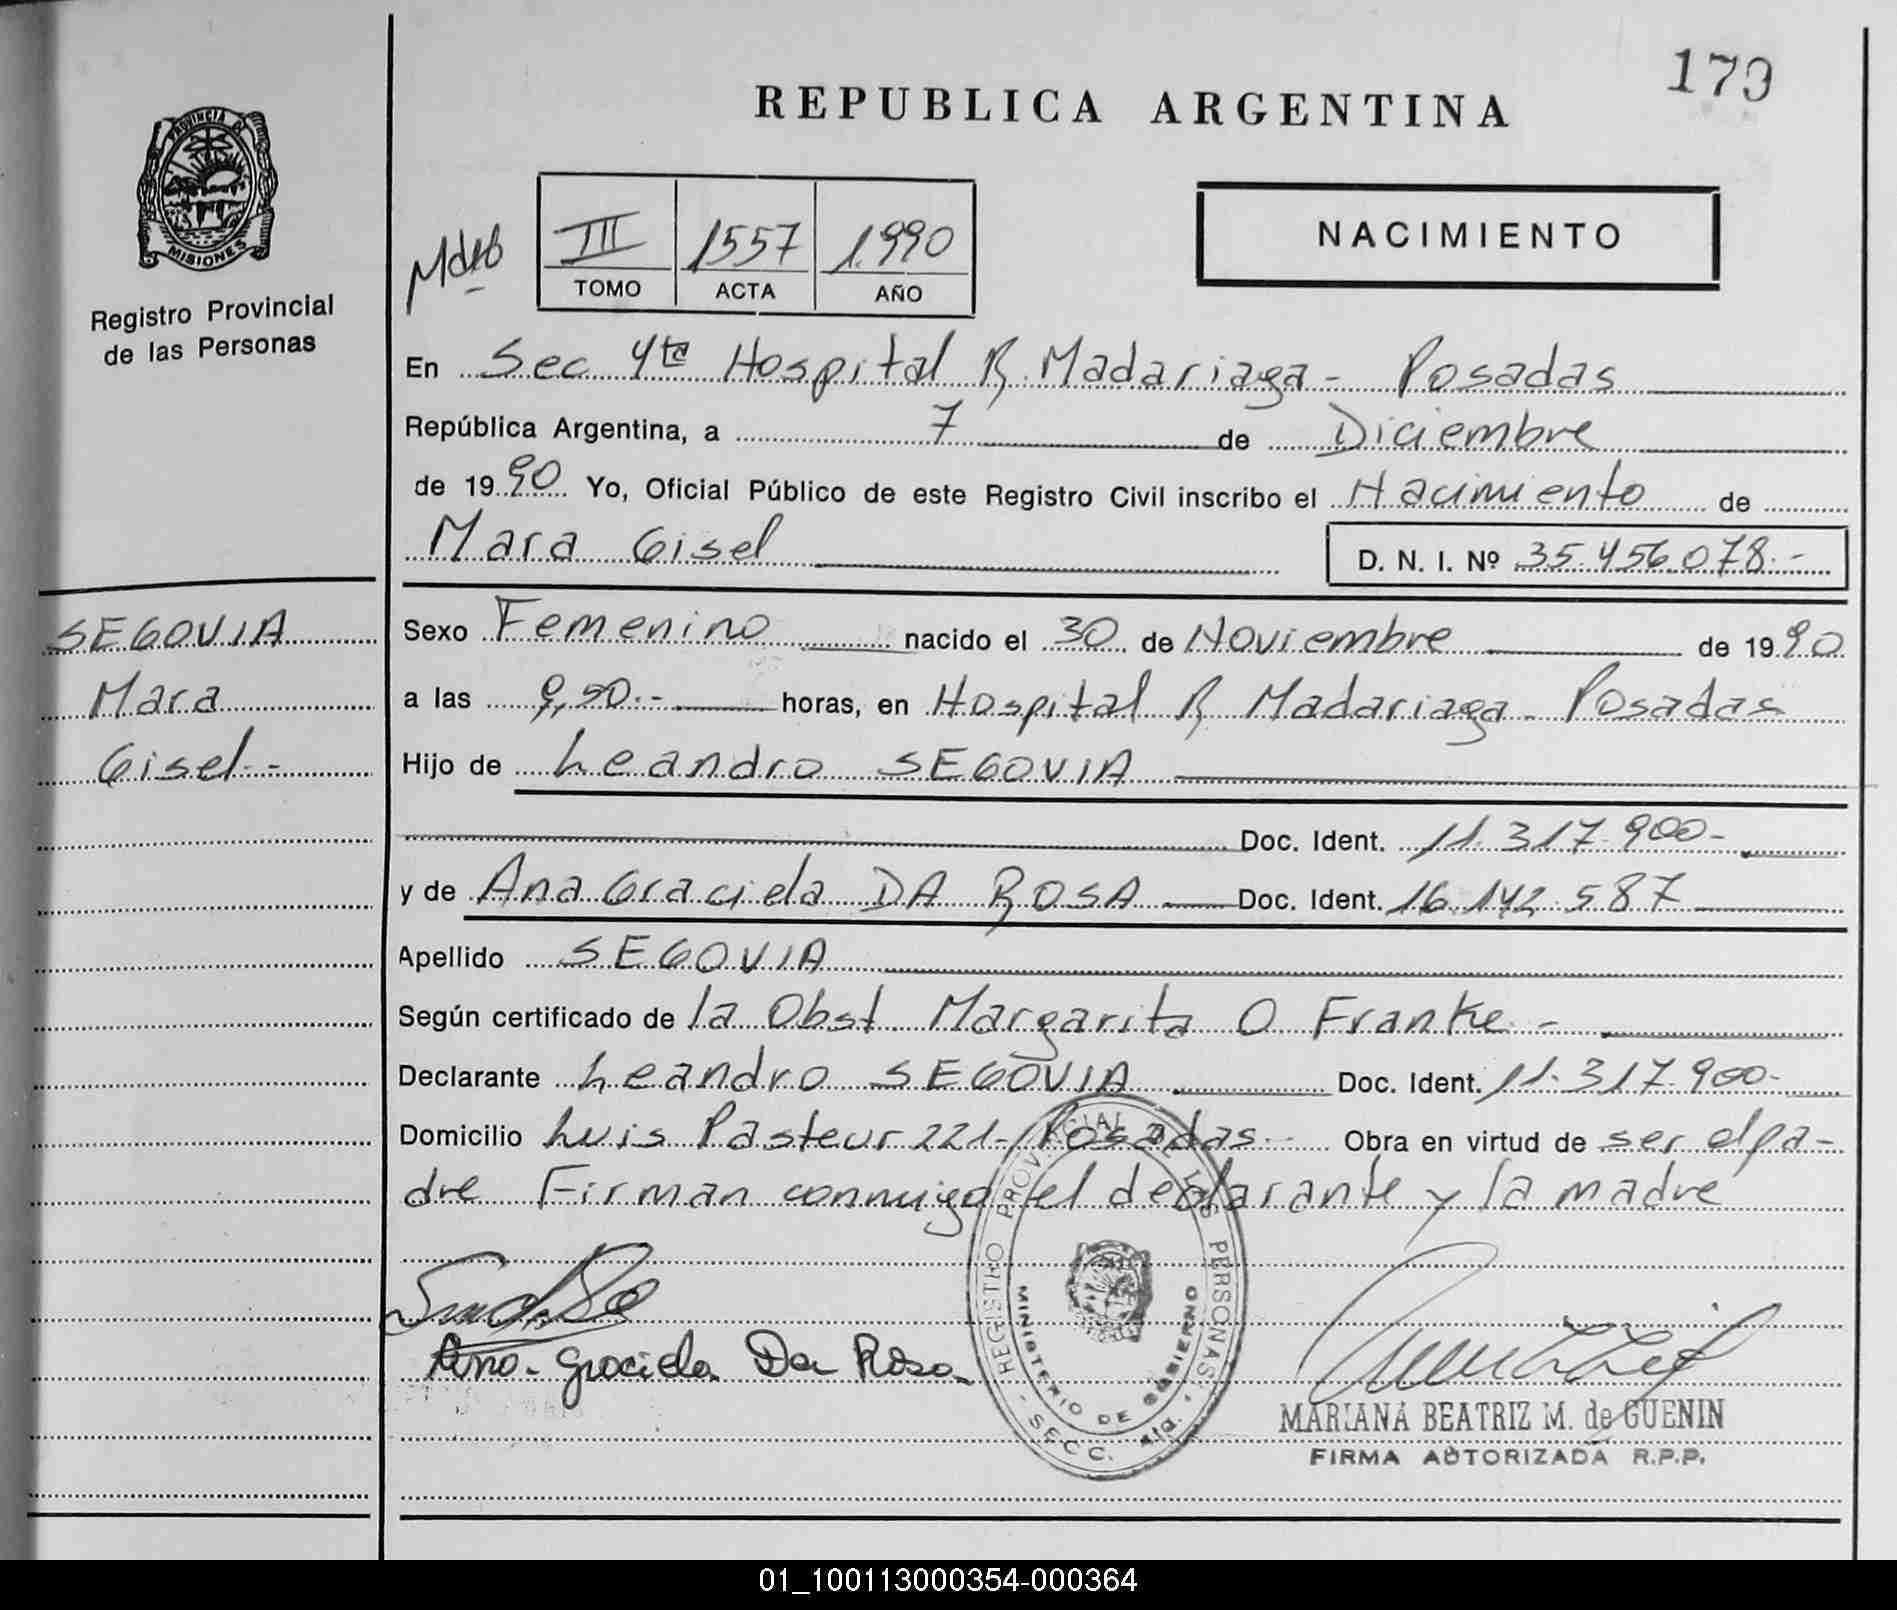 173
REPUBLICA ARGENTINA
PROVINCIA DE
MISIONES
Registro Provincial
de las Personas
III 1557 1.990
TOMO ACTA AÑO
NACIMIENTO
En Sec 4ta Hospital R. Madariaga - Posadas
República Argentina, a 7 de Diciembre
de 1990 Yo, Oficial Público de este Registro Civil inscribo el Nacimiento de
Mara Gisel D. N. I. Nº 35.456.078.-
SEGOVIA
Mara
Gisel.-
Sexo Femenino nacido el 30 de Noviembre de 1990
a las 9,50.- horas, en Hospital R Madariaga - Posadas
Hijo de Leandro SEGOVIA
Doc. Ident. 11.317.900-
y de Ana Graciela DA ROSA Doc. Ident. 16.142.587
Apellido SEGOVIA
Según certificado de la Obst Margarita O Franke -
Declarante Leandro SEGOVIA Doc. Ident. 11.317.900-
Domicilio Luis Pasteur 221- Posadas.- Obra en virtud de ser el pa-
dre Firman conmigo el declarante y la madre
REGISTRO PROVINCIAL DE LAS PERSONAS
MINISTERIO DE GOBIERNO
SECC. 4ta.
Ana - Graciela Da Rosa
MARIANA BEATRIZ M. de GUENIN
FIRMA AUTORIZADA R.P.P.
01_100113000354-000364